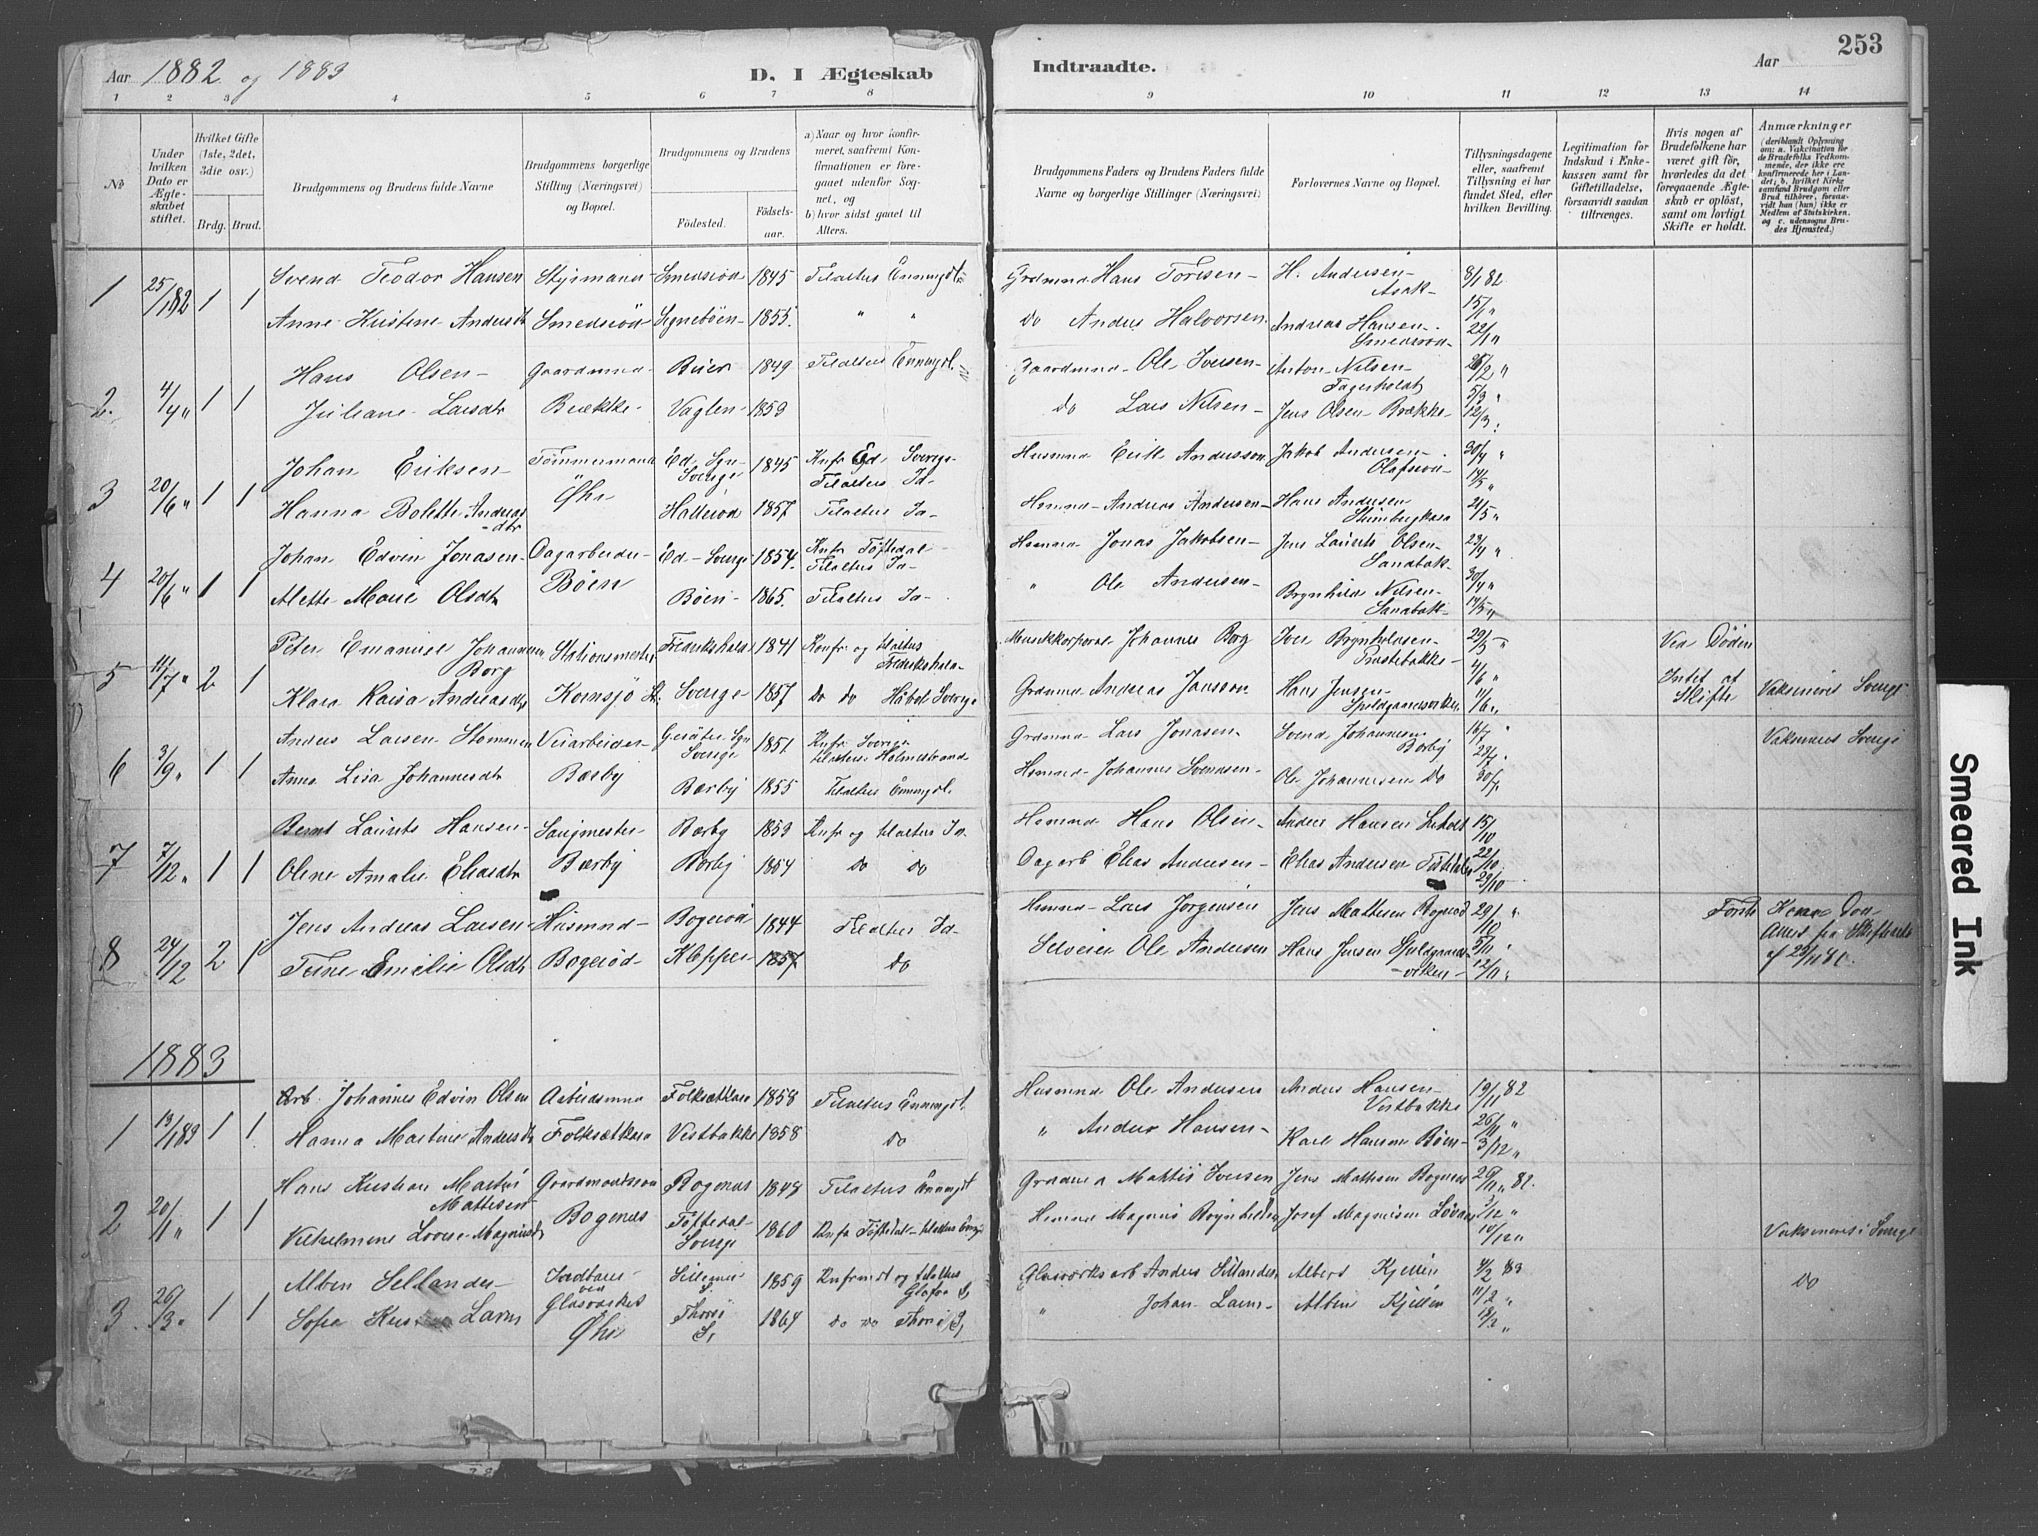 Aar 1882 og 1883
D. I Ægteskab
Indtraadte.
Aar
253
1 2 3 4 5 6 7 8 9 10 11 12 13 14
No
Under hvilken Dato er Ægte-skabet stiftet.
Hvilket Gifte (1ste, 2det, 3die osv.)
Brdg. Brud.
Brudgommens og Brudens fulde Navne
Brudgommens borgerlige Stilling (Næringsvei) og Bopæl.
Brudgommens og Brudens
Fødested.
Fødsels-aar.
a) Naar og hvor konfir-meret, saafremt Kon-firmationen er fore-gaaet udenfor Sog-net, og
b) hvor sidst gaaet til Alters.
Brudgommens Faders og Brudens Faders fulde Navne og borgerlige Stillinger (Næringsvei)
Forlovernes Navne og Bopæl.
Tillysningsdagene eller, saafremt Tillysning ei har fundet Sted, efter hvilken Bevilling.
Legitimation for Indskud i Enke-kassen samt for Giftetilladelse, forsaavidt saadan tiltrænges.
Hvis nogen af Brudefolkene har været gift før, hvorledes da det foregaaende Ægte-skab er opløst, samt om lovligt Skifte er holdt.
Anmærkninger (deriblandt Oplysning om: a. Vakcination for de Brudefolks Vedkom-mende, der ikke ere konfirmerede her i Lan-det; b. hvilket Kirke samfund Brudgom eller Brud tilhører, forsaa-vidt han (hun) ikke er Medlem af Statskirken, og c. udensogns Bru-des Hjemsted.)
1 25/1 82 1 1 Svend Teodor Hansen 1845 Tilalters Enningdl. Grdmnd Hans Toresen H. Andersen Asak 8/1 82
Anne Kristine Andersdtr Smedsrød Signebøen 1855. " " do Anders Halvorsen Andreas Hansen Smedsrød 15/1 " 22/1 "
2. 4/4 " 1 1 Hans Olsen Gaardmand 1849 Tilalters Enningdl. Gaardmnd Ole Iversen Anton Nilsen Tagerholdt 26/2 " 5/3 "
Juliane Larsdtr Brække Vaglen 1859 do Lars Nilsen Jens Olsen Brække 12/3.
3 20/6 " 1 1 Johan Eriksen Tømmermand Ed Sgn Sverige 1845 Knfr Ed Sverge Tilalters Id Husmnd Erik Andersson Jakob Andersen 30/4 " 14/5 "
Hanna Bolette Andreas dtr Øhr 1857 Tilalters Id Hsmnd Andreas Andersen Hans Andersen 21/5 "
4 20/6 " 1 1 Johan Edvin Jonasen Dagarbeider Ed Sverge 1854. Knfr Tøftedal Tilalters Id Hsmnd Jonas Jakobsen Jens Laurits Olsen Sandbæk 23/4 "
Alette Marie Olsdtr Bøen Bøen 1865. Tilalters Id " Ole Andersen Brynhild Nilsen Sandbæk 30/4 " 14/5 "
5 11/7 " 2 1 Peter Emanuel Johannesen Borg Stationsmester Fredrikshald 1841 Konfr og tilalters Fredrikshald Musikkorporal Johannes Borg Iver Brynhildsen Prestebakke 29/5 " 4/6 " Ved Døden
Klara Kaisa Andreasdtr Kornsjø St. Sverige 1857 do do Håbol Sverge Grdmnd Andreas Jansson Hans Jensen 11/6 " Intet af Skifte Vaksineret Sverge
6 3/9 " 1 1 Anders Larsen Stommen Veiarbeider Sgn Sverige 1851 Knfr Sverge tilalters Holmestrand Grdmnd Lars Jonasen Svend Johannesen Berby 16/7 " 23/7 " Vaksineret Sverige
Anna Lisa Johannesdtr Bærby Bærby 1855 Tilalters Enningdl. Hsmnd Johannes Svendsen Ole Johannesen do 30/7
7 7/12 " 1 1 Bernt Laurits Hansen Saugmester Bærby 1859 Knfr og tilalters Id Hsmnd Hans Olsen Anders Hansen 15/10
Oline Amalie Eliasdtr Bærby Berby 1854 do do Dagarb Elias Andersen Elias Andersen 22/10 29/10
8 24/12 2 1 Jens Andreas Larsen Husmnd Bogerød 1844 Tilalters Id Hsmnd Lars Jørgensen Jens Mattesen Bogerød 29/10 " Første Kone Død
Tine Emilie Olsdtr Bogerød Klopper 1857 do Selveier Ole Andersen Hans Jensen 5/11 " 12/11 " Attest fra Skifteretten af 23/11 81.
1883
1 13/1 83 1 1 Arb. Johannes Edvin Olsen Arbeidsmnd Folksætkasa 1858 Tilalters Enningdl. Husmnd Ole Andersen Anders Hansen Vestbakke 19/11 82
Hanna Martine Andersdtr Folksætkasa Vestbakke 1858 do " Anders Hansen Karl Hansen Bøen 26/11 " 3/12 "
2 20/1 " 1 1 Hans Kristian Martin Mattesen Gaardmandssøn Bogerød 1848 Tilalters Enningdl Grdmnd Mattis Iversen Jens Mathesen Bogerød 26/11 " 82.
Vilhelmine Lovise Magnusdtr Bogerød Tøftedal Sverge 1860 Knfr Tøftedal tilalters Enngdl Hsmnd Magnus Brynhildsen Josef Magnusen 3/12 " 10/12 " Vaksineret i Sverge
3. 26/3 " 1 1 Albin Sellander ved Glasværket Øhr 1859 Knfrmrdt og tilalters Glafva S. Glasværksarb Anders Sellander Albert Kjellén 4/2 83 do
Sofia Larsn S. 1864 do do S, " Johan Larsn Albin Kjellén 11/2 " 18/2 "
Smeared Ink